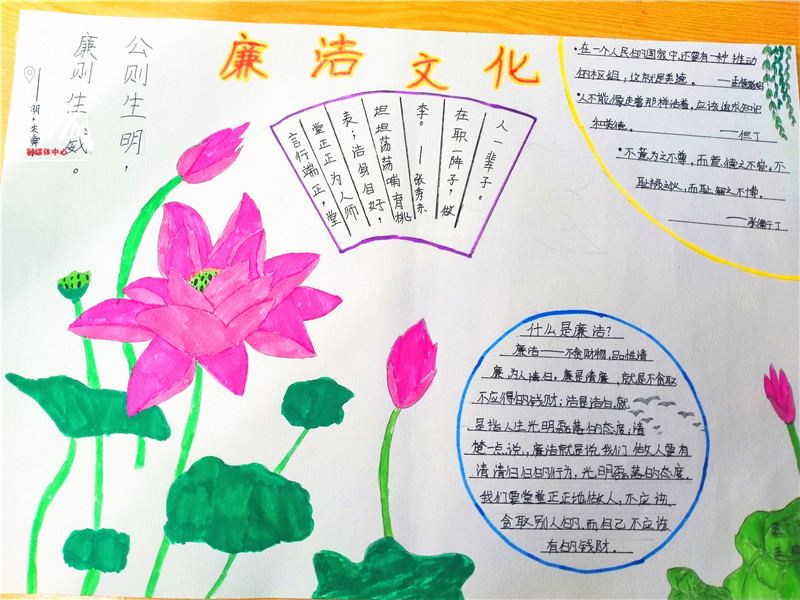 廉洁文化
公则生明，
廉则生威。
——明·朱舜
融媒体中心
人一辈子。
在职一阵子，做
李。——张秀东
坦坦荡荡哺育桃
表；洁身自好，
堂正正为人师
言行端正，堂
·在一个人民的国家中，还要有一种推动
的枢纽，这就是美德。——孟德斯鸠
·人不能像走兽那样活着，应该追求知识
和美德。——但丁
·不患位之不尊，而患德之不崇，不
耻禄之
，而耻智之不博。
什么是廉洁？
廉洁——不贪财物，品性清
廉，为人清白。廉是清廉，就是不贪取
不应得的钱财；洁是洁白，就
是指人生光明磊落的态度，清
楚一点说，廉洁就是说我们做人要有
清清白白的行为，光明磊落的态度，
我们要堂堂正正地做人，不应该
贪取别人的，而自己不应该
有的钱财。